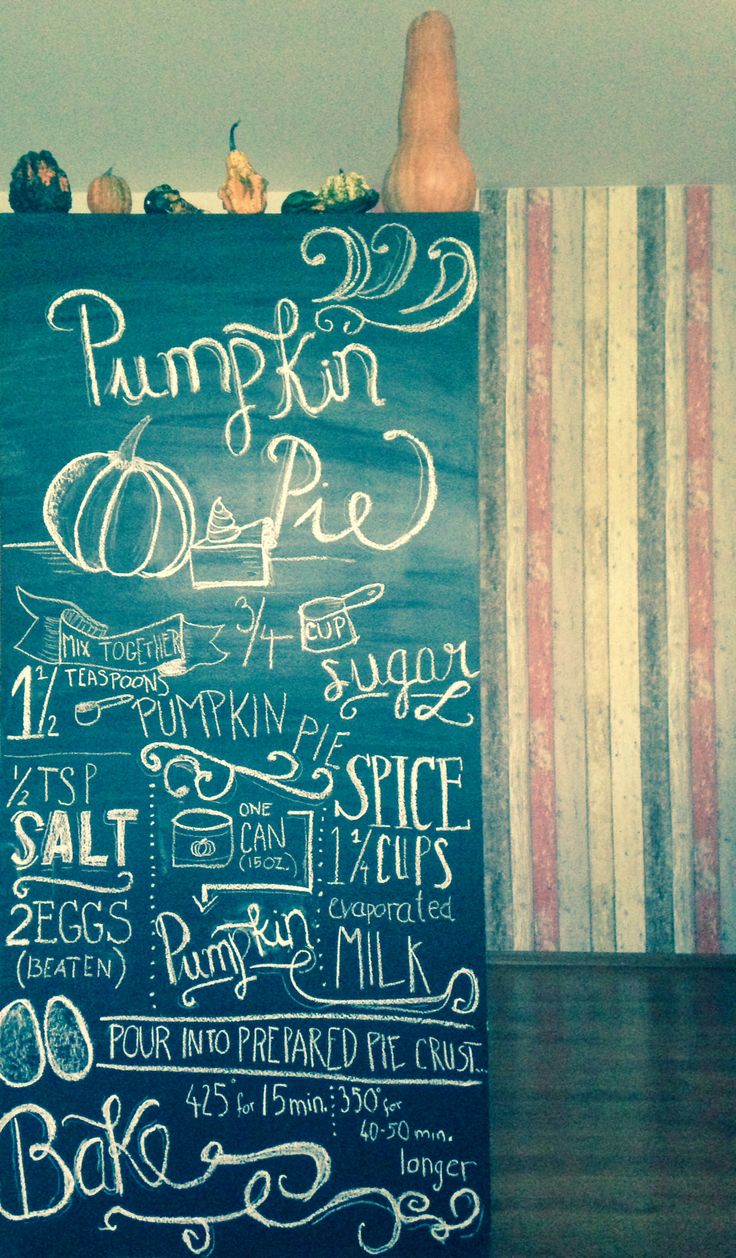 Pumpkin
Pie
MIX TOGETHER
3/4 CUP
sugar
1 1/2 TEASPOONS
PUMPKIN PIE
SPICE
1/2 TSP
SALT
2 EGGS
(BEATEN)
ONE
CAN
(15OZ.)
Pumpkin
1 1/4 CUPS
evaporated
MILK
POUR INTO PREPARED PIE CRUST...
Bake
425° for 15 min. 350° for
40-50 min.
longer